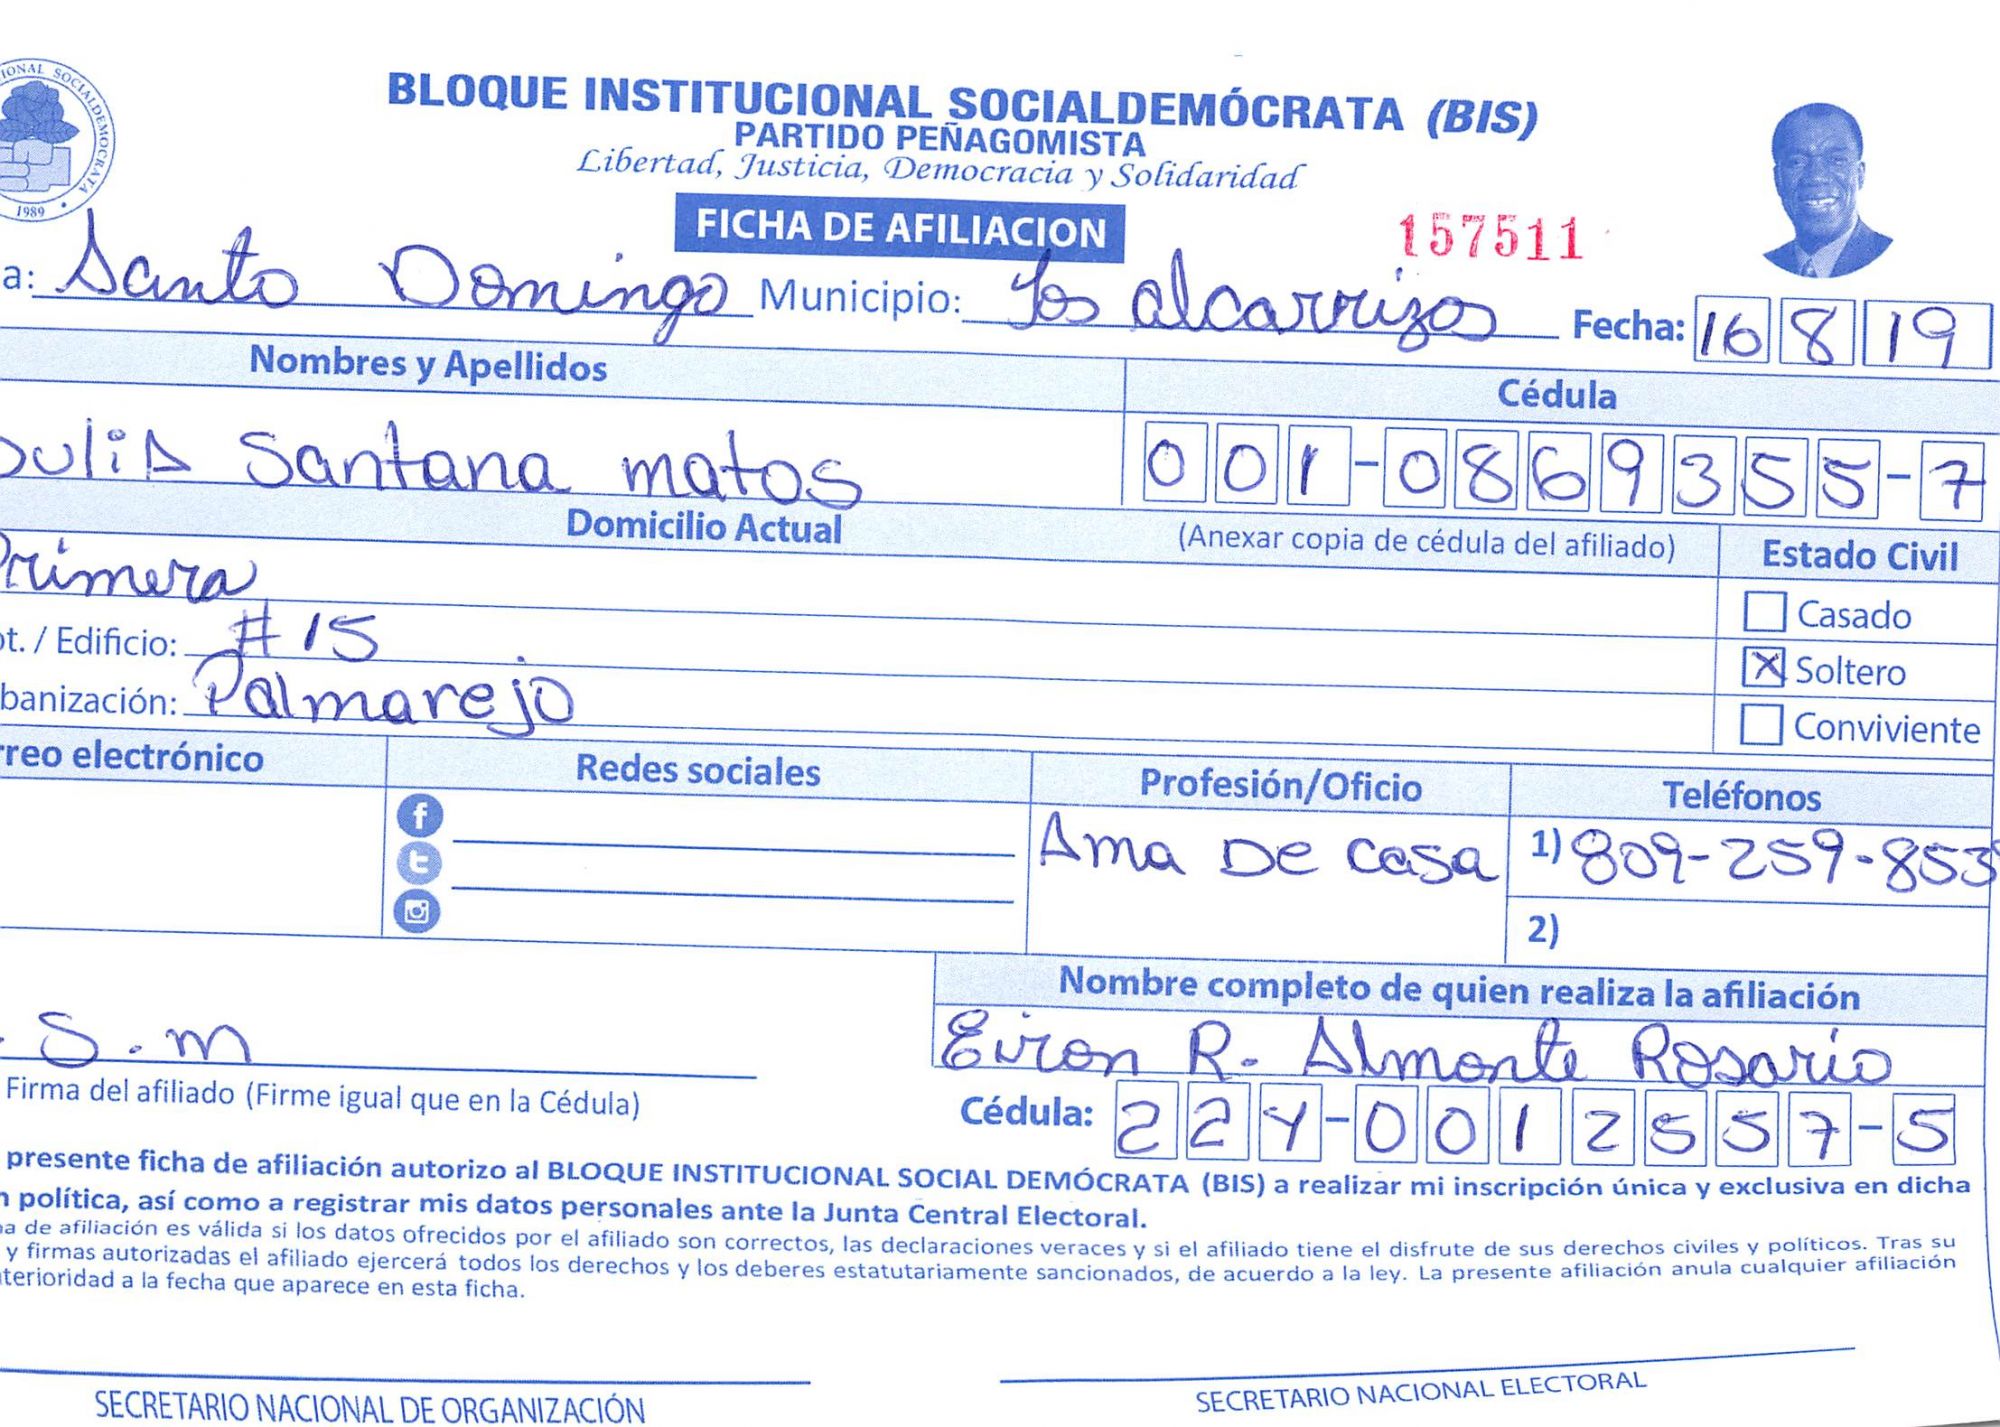 BLOQUE INSTITUCIONAL SOCIALDEMÓCRATA (BIS)
PARTIDO PEÑAGOMISTA
Libertad, Justicia, Democracia y Solidaridad
IONAL SOCIALDEMOCRATA
1989
FICHA DE AFILIACION
157511
a: Santo Domingo Municipio: Los alcarrizos Fecha: 16 8 19
Nombres y Apellidos Cédula
Santana matos 001-0869355-7
Domicilio Actual (Anexar copia de cédula del afiliado) Estado Civil
Primera
Casado
ot. / Edificio: #15
X Soltero
banización: Palmarejo
Conviviente
rreo electrónico Redes sociales Profesión/Oficio Teléfonos
Ama De casa 1) 809-259-853
2)
Nombre completo de quien realiza la afiliación
. S. m Eiron R. Almonte Rosario
Firma del afiliado (Firme igual que en la Cédula) Cédula: 224-0012557-5
presente ficha de afiliación autorizo al BLOQUE INSTITUCIONAL SOCIAL DEMÓCRATA (BIS) a realizar mi inscripción única y exclusiva en dicha
n política, así como a registrar mis datos personales ante la Junta Central Electoral.
ha de afiliación es válida si los datos ofrecidos por el afiliado son correctos, las declaraciones veraces y si el afiliado tiene el disfrute de sus derechos civiles y políticos. Tras su
y firmas autorizadas el afiliado ejercerá todos los derechos y los deberes estatutariamente sancionados, de acuerdo a la ley. La presente afiliación anula cualquier afiliación
terioridad a la fecha que aparece en esta ficha.
SECRETARIO NACIONAL DE ORGANIZACIÓN SECRETARIO NACIONAL ELECTORAL